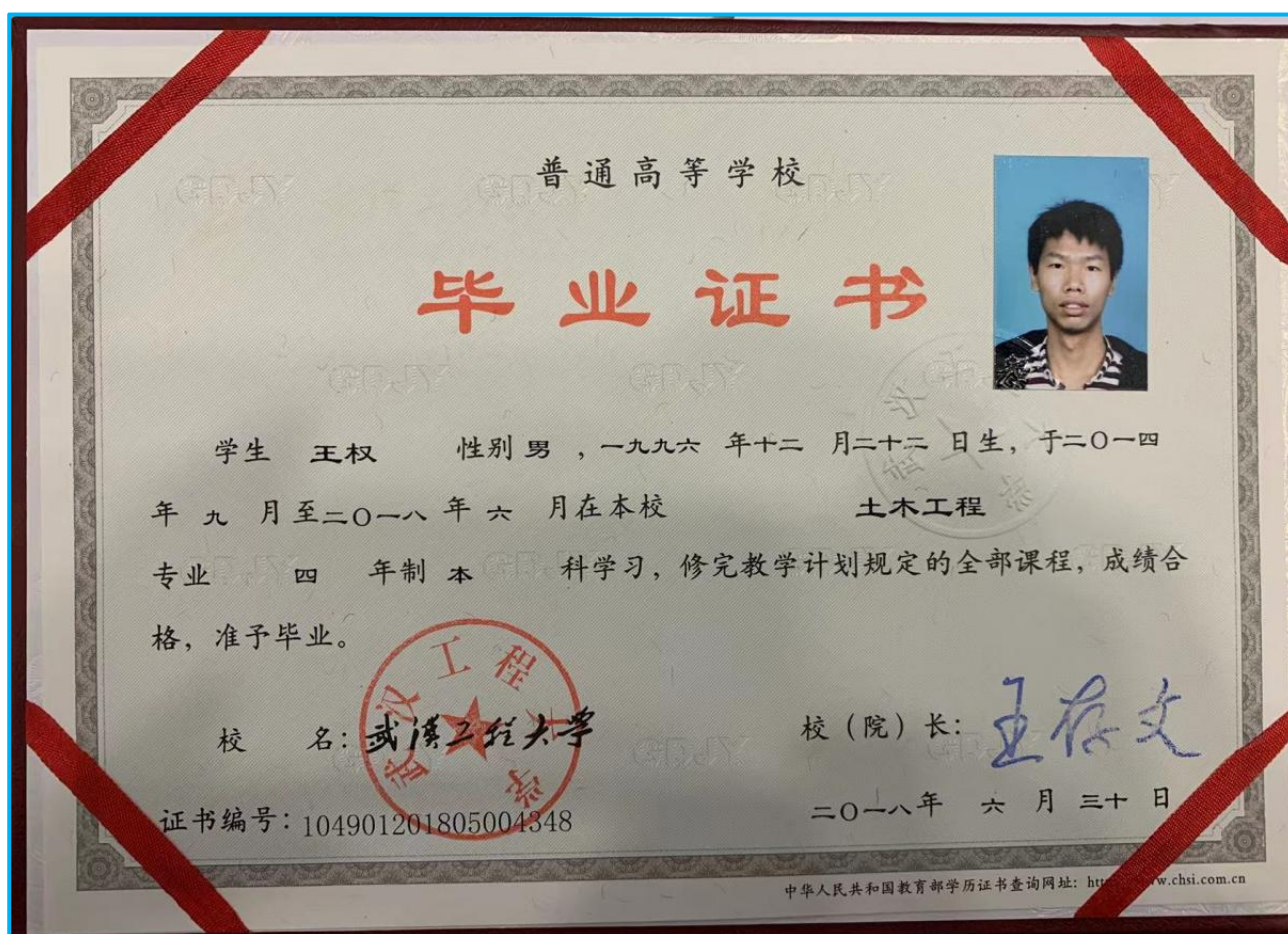 普通高等学校
毕业证书
学生 王权 性别 男 ，一九九六 年十二 月二十二 日生，于二〇一四
年 九 月至二〇一八 年 六 月在本校 土木工程
专业 四 年制 本 科学习，修完教学计划规定的全部课程，成绩合
格，准予毕业。
武汉工程大学
校 名：武汉工程大学
校（院）长：王存文
证书编号：104901201805004348
二〇一八年 六 月 三十 日
中华人民共和国教育部学历证书查询网址：htt w.chsi.com.cn